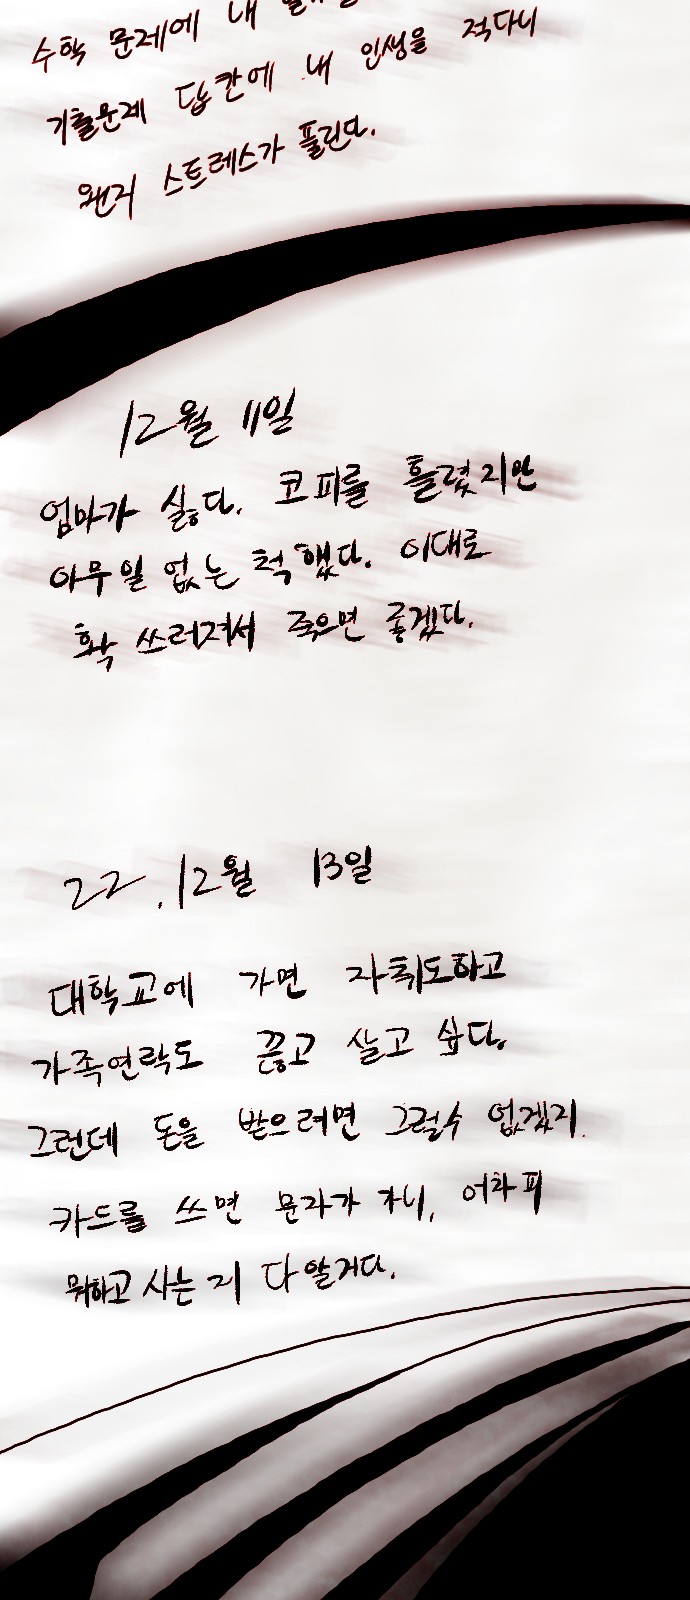 수학 문제에 내
기출문제 답칸에 내 인생을 적다니
왠지 스트레스가 풀린다.
12월 11일
엄마가 싫다. 코피를 흘렸지만
아무일 없는 척 했다. 이대로
확 쓰러져서 죽으면 좋겠다.
22.12월 13일
대학교에 가면 자취도하고
가족연락도 끊고 살고 싶다.
그런데 돈을 받으려면 그럴수 없겠지.
카드를 쓰면 문자가 가니, 어차피
뭐하고 사는지 다 알거다.